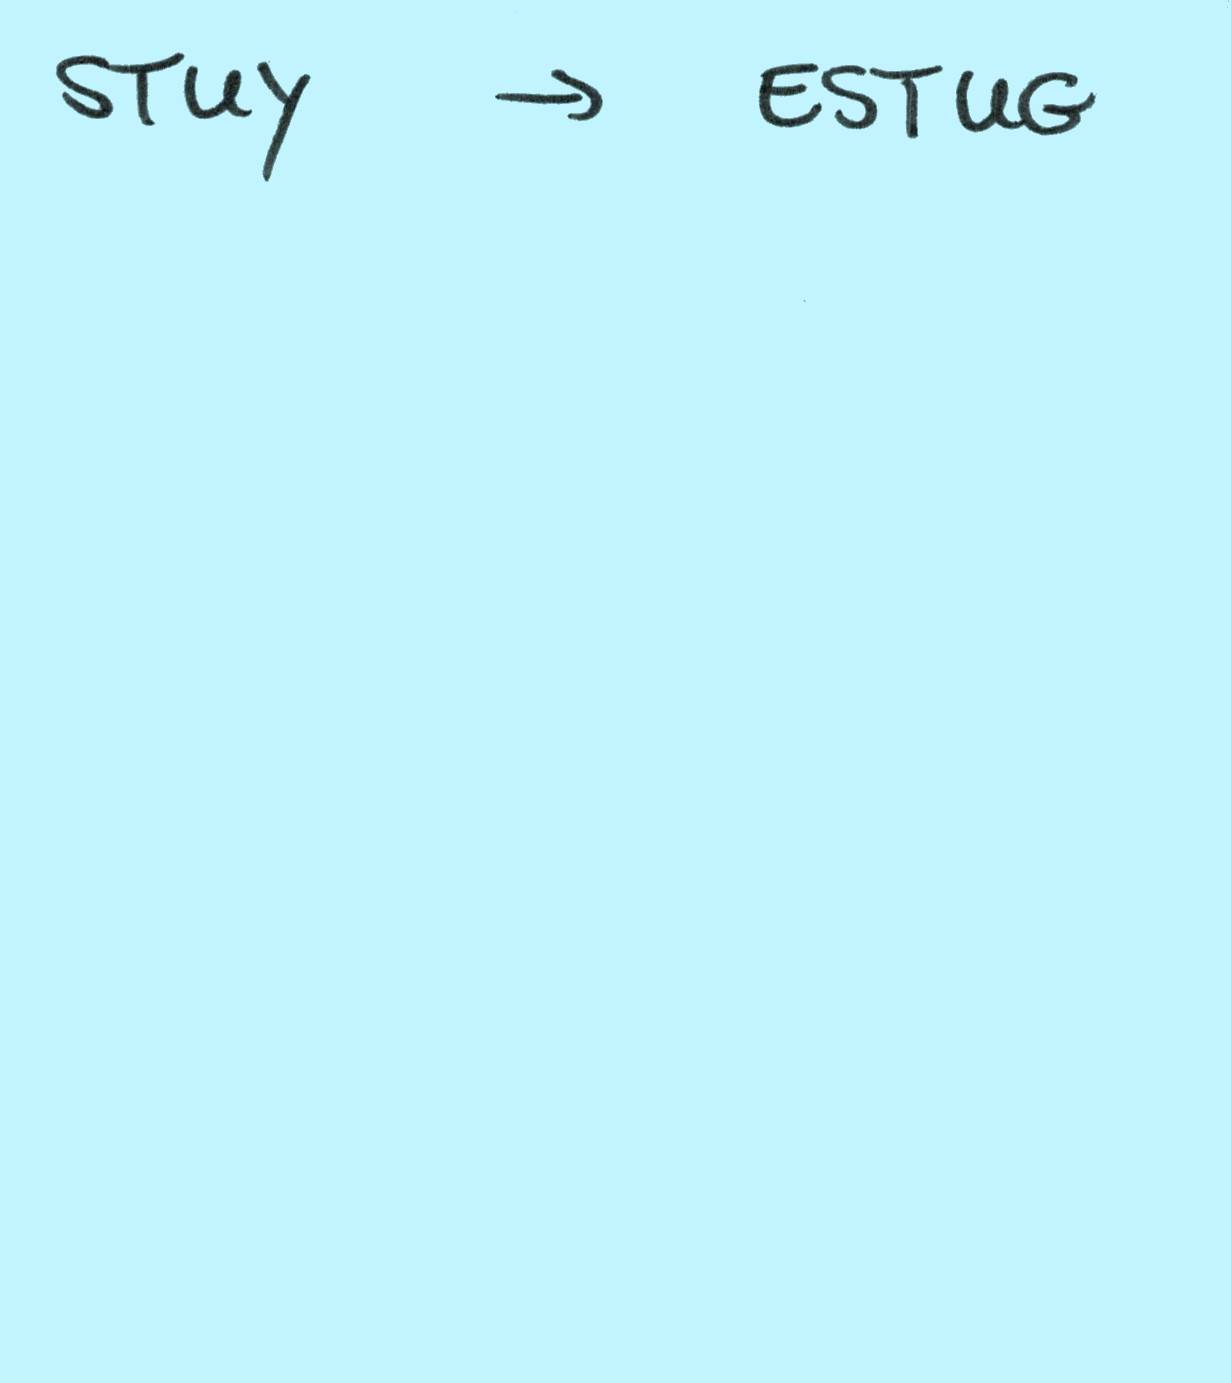 STUY → ESTUG